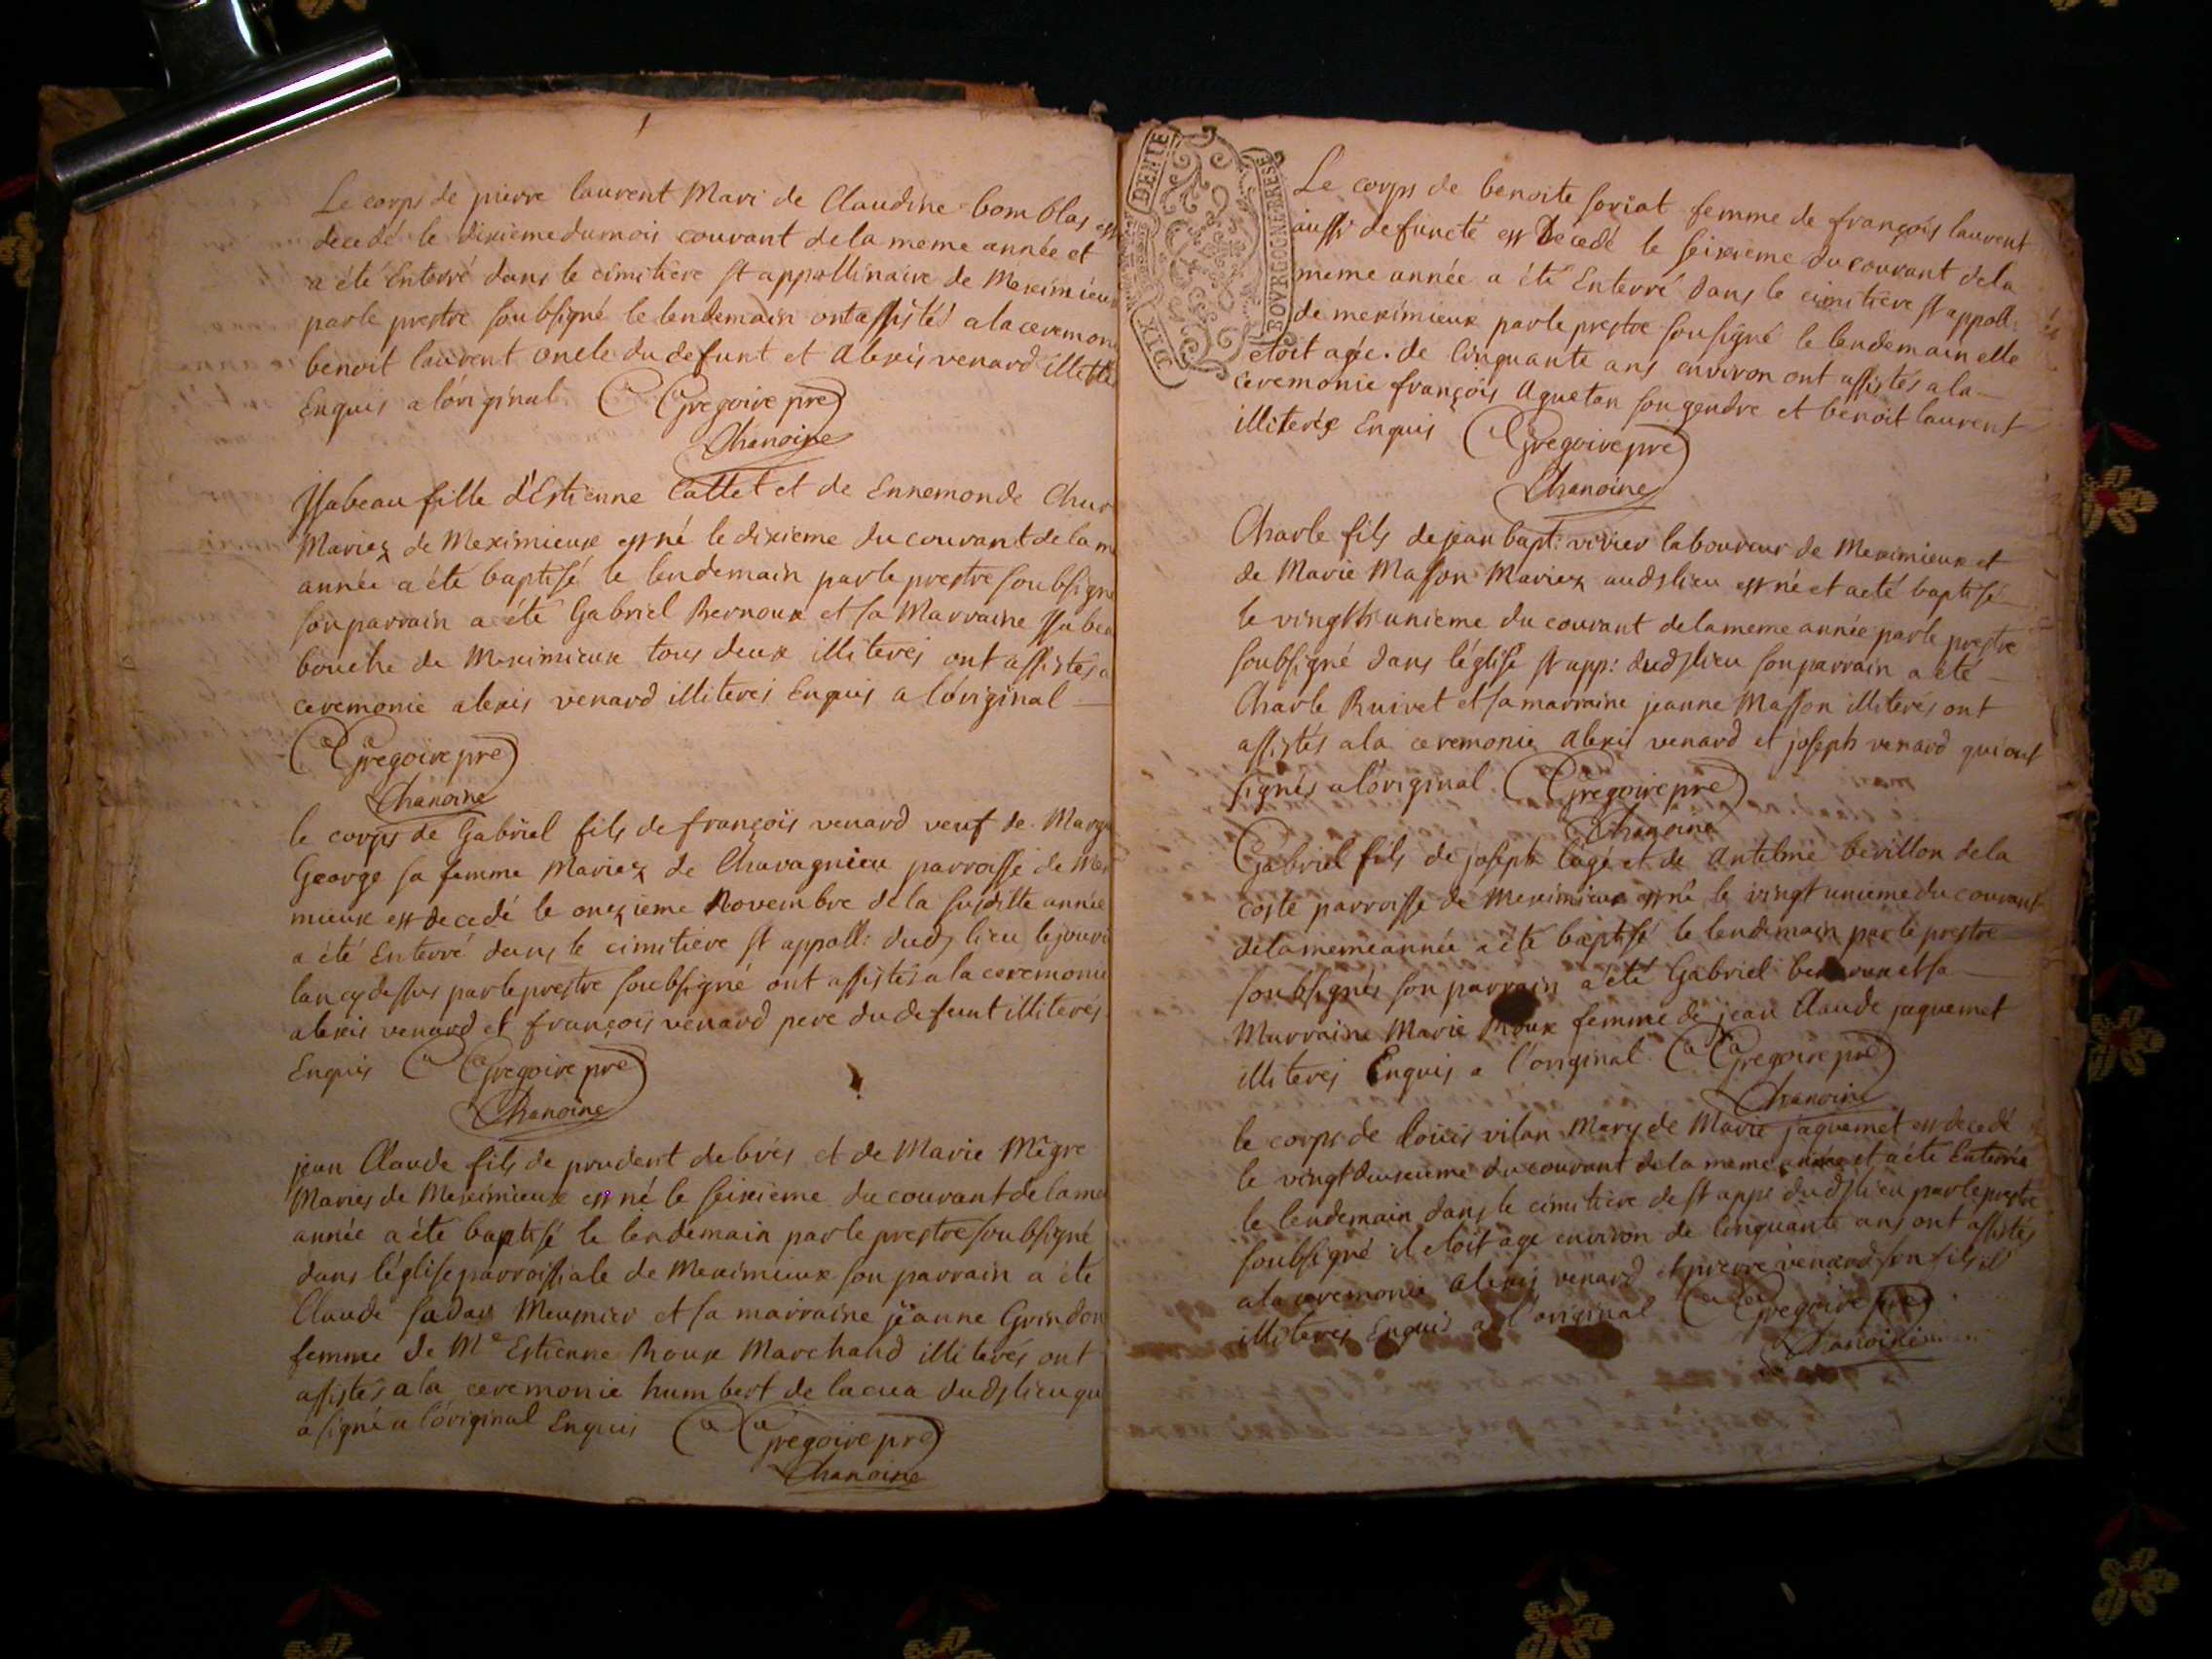 Le corps de pierre laurent Mari de Claudine bomblas est
decedé le dixieme du mois courant de la meme année et
a été Enterré dans le cimitiere st appollinaire de Meximieux
par le prestre soubsigné le lendemain ont assistés a la ceremoni
benoit laurent oncle du defunt et Alexis venard illitte
Enquis a l'original Gregoire pre
Chanoine
Jsabeau fille d'Estienne Cattet et de Ennemonde Chur
Mariez de Meximieux est né le dixieme du courant de la m
année a été baptisé le lendemain par le prestre soubsigne
son parrain a été Gabriel Bernoux et sa Marraine Jsabea
bouche de Meximieux tous deux illiterés ont assistés a
ceremonie alexis venard illiterés Enquis a l'original
Gregoire pre
Chanoine
le corps de Gabriel fils de françois venard veuf de Margu
George sa femme Mariez de Chavagnieu parroisse de Mexi
mieux est decedé le onzieme Novembre de la susditte année
a été Enterré dans le cimitiere st appoll: dudz lieu le jour
lan cy dessus par le prestre soubsigné ont assistés a la ceremonie
alexis venard et françois venard pere du defunt illiterés
Enquis Gregoire pre
Chanoine
jean Claude fils de prudent debrés et de Marie Mégre
Mariés de Meximieux est né le seixieme du courant de la me
année a été baptisé le lendemain par le prestre soubsigné
dans l'église parroissiale de Meximieux son parrain a été
Claude Meusnier et sa marraine jeanne Grindon
femme de Me Estienne Roux Marchand illiterés ont
assistés a la ceremonie humbert de lacua dudz lieu qu
a signé a l'original Enquis Gregoire pre
Chanoine
DIX DENIE
BOVRGOGNE BRESE
Le corps de benoite soriat femme de françois laurent
aussi defuncté est Decedé le seixieme du courant de la
meme année a été Enterré dans le cimitiere st appoll:
de meximieux par le prestre sousigné le lendemain elle
etoit agée de Cinquante ans environ ont assistés a la
ceremonie françois Agueton son gendre et benoit laurent
illiteréz Enquis Gregoire pre
Chanoine
Charle fils de jean bapt: vivier laboureur de Meximieux et
de Marie Masson Mariez audz lieu est né et a eté baptisé
le vingtunieme du courant de la meme année par le prestre
soubsigné dans l'église st app: dudz lieu son parrain a été
Charle Ruivet et sa marraine jeanne Masson illiterés ont
assistés a la ceremonie Alexis venard et joseph venard qui ont
signés a l'original Gregoire pre
Chanoine
Gabriel fils de joseph Cagé et de Antelme berillon de la
coste parroisse de Meximieux est né le vingt unieme du courant
de la meme année a été baptisé le lendemain par le prestre
soubsignés son parrain a été Gabriel et sa
Marraine Marie Roux femme de jean Claude jaquemet
illiterés Enquis a l'original Gregoire pre
Chanoine
le corps de Louis vilan Mary de Marie jaquemet est decedé
le vingtdeuxieme du courant de la meme année et a été Enterré
le lendemain dans le cimitiere de st app: dudz lieu par le prestre
soubsigné il etoit agé environ de Cinquante ans ont assistés
a la ceremonie Alexis venard et pierre venard son fils
illiterés Enquis a l'original Gregoire pre
Chanoine